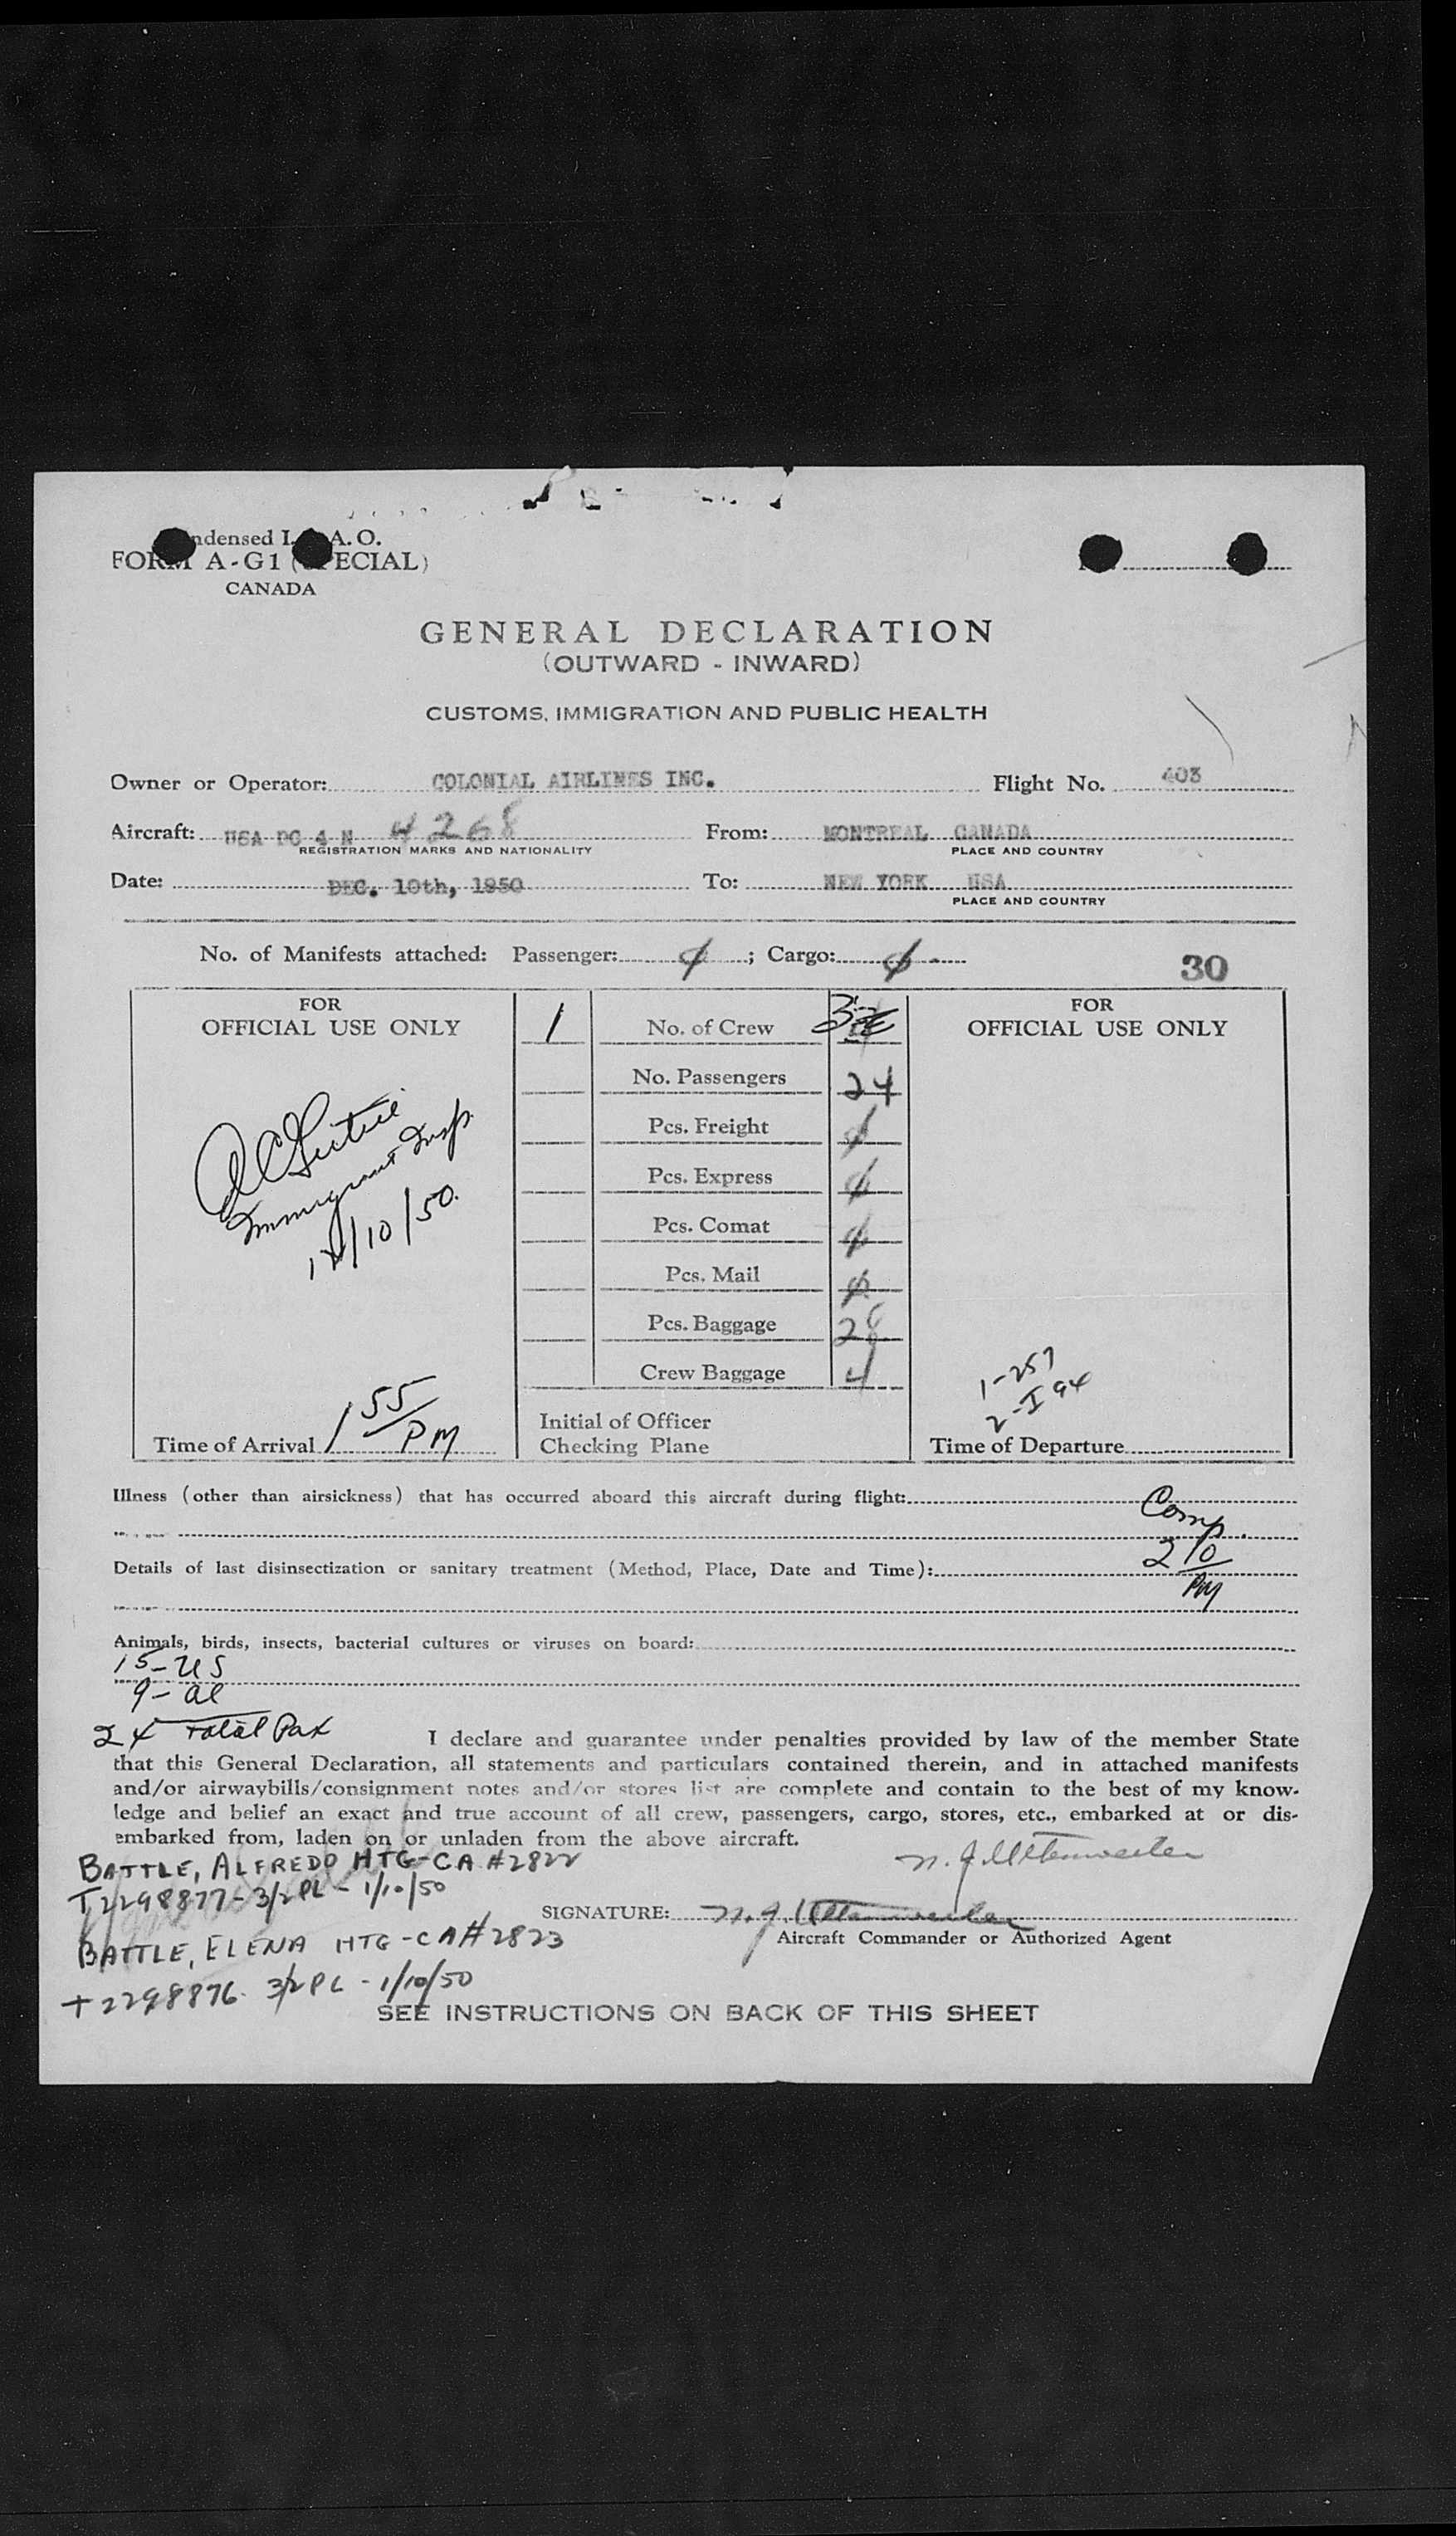 ndensed I. A. O.
FORM A-G1 (SPECIAL)
CANADA
GENERAL DECLARATION
(OUTWARD - INWARD)
CUSTOMS, IMMIGRATION AND PUBLIC HEALTH
Owner or Operator: COLONIAL AIRLINES INC. Flight No. 403
Aircraft: USA DC 4 N 4268 From: MONTREAL CANADA
REGISTRATION MARKS AND NATIONALITY PLACE AND COUNTRY
Date: DEC. 10th, 1950 To: NEW YORK USA
PLACE AND COUNTRY
No. of Manifests attached: Passenger: ; Cargo:
30
FOR
OFFICIAL USE ONLY
Immigrant Insp.
/10/50.
Time of Arrival 1 55 PM
1 No. of Crew 3
No. Passengers 24
Pcs. Freight
Pcs. Express
Pcs. Comat
Pcs. Mail
Pcs. Baggage 28
Crew Baggage 4
Initial of Officer
Checking Plane
FOR
OFFICIAL USE ONLY
1-257
2-I 94
Time of Departure
Illness (other than airsickness) that has occurred aboard this aircraft during flight:
Comp.
Details of last disinsectization or sanitary treatment (Method, Place, Date and Time):
2 10 PM
Animals, birds, insects, bacterial cultures or viruses on board:
15-US
9-al
24 Total Pax
I declare and guarantee under penalties provided by law of the member State
that this General Declaration, all statements and particulars contained therein, and in attached manifests
and/or airwaybills/consignment notes and/or stores list are complete and contain to the best of my know-
ledge and belief an exact and true account of all crew, passengers, cargo, stores, etc., embarked at or dis-
embarked from, laden on or unladen from the above aircraft.
BATTLE, ALFREDO HTG-CA #2822
T2298877-3/2 PL - 1/10/50
SIGNATURE:
Aircraft Commander or Authorized Agent
BATTLE, ELENA HTG-CA#2823
T2298876. 3/2 PL - 1/10/50
SEE INSTRUCTIONS ON BACK OF THIS SHEET